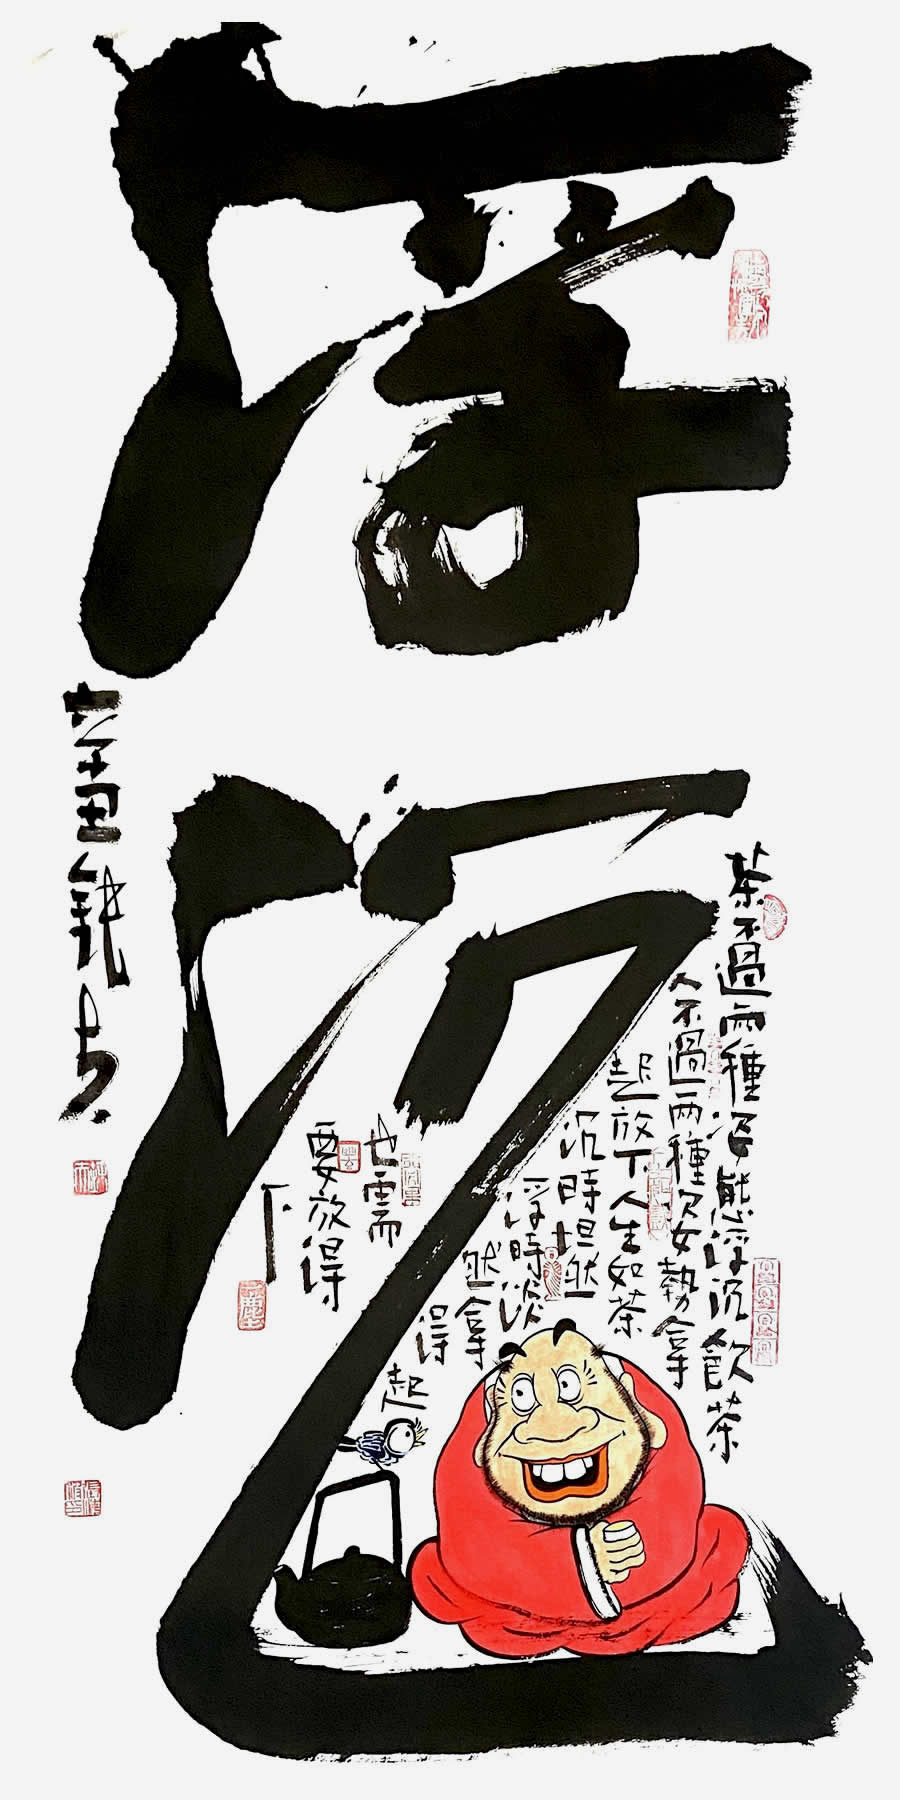 浮沉
茶不過兩種姿態浮沉飲茶
人不過兩種姿勢拿
起放下人生如茶
沉時坦然
浮時淡
然拿
得
起
也需
要放得
下
辛丑